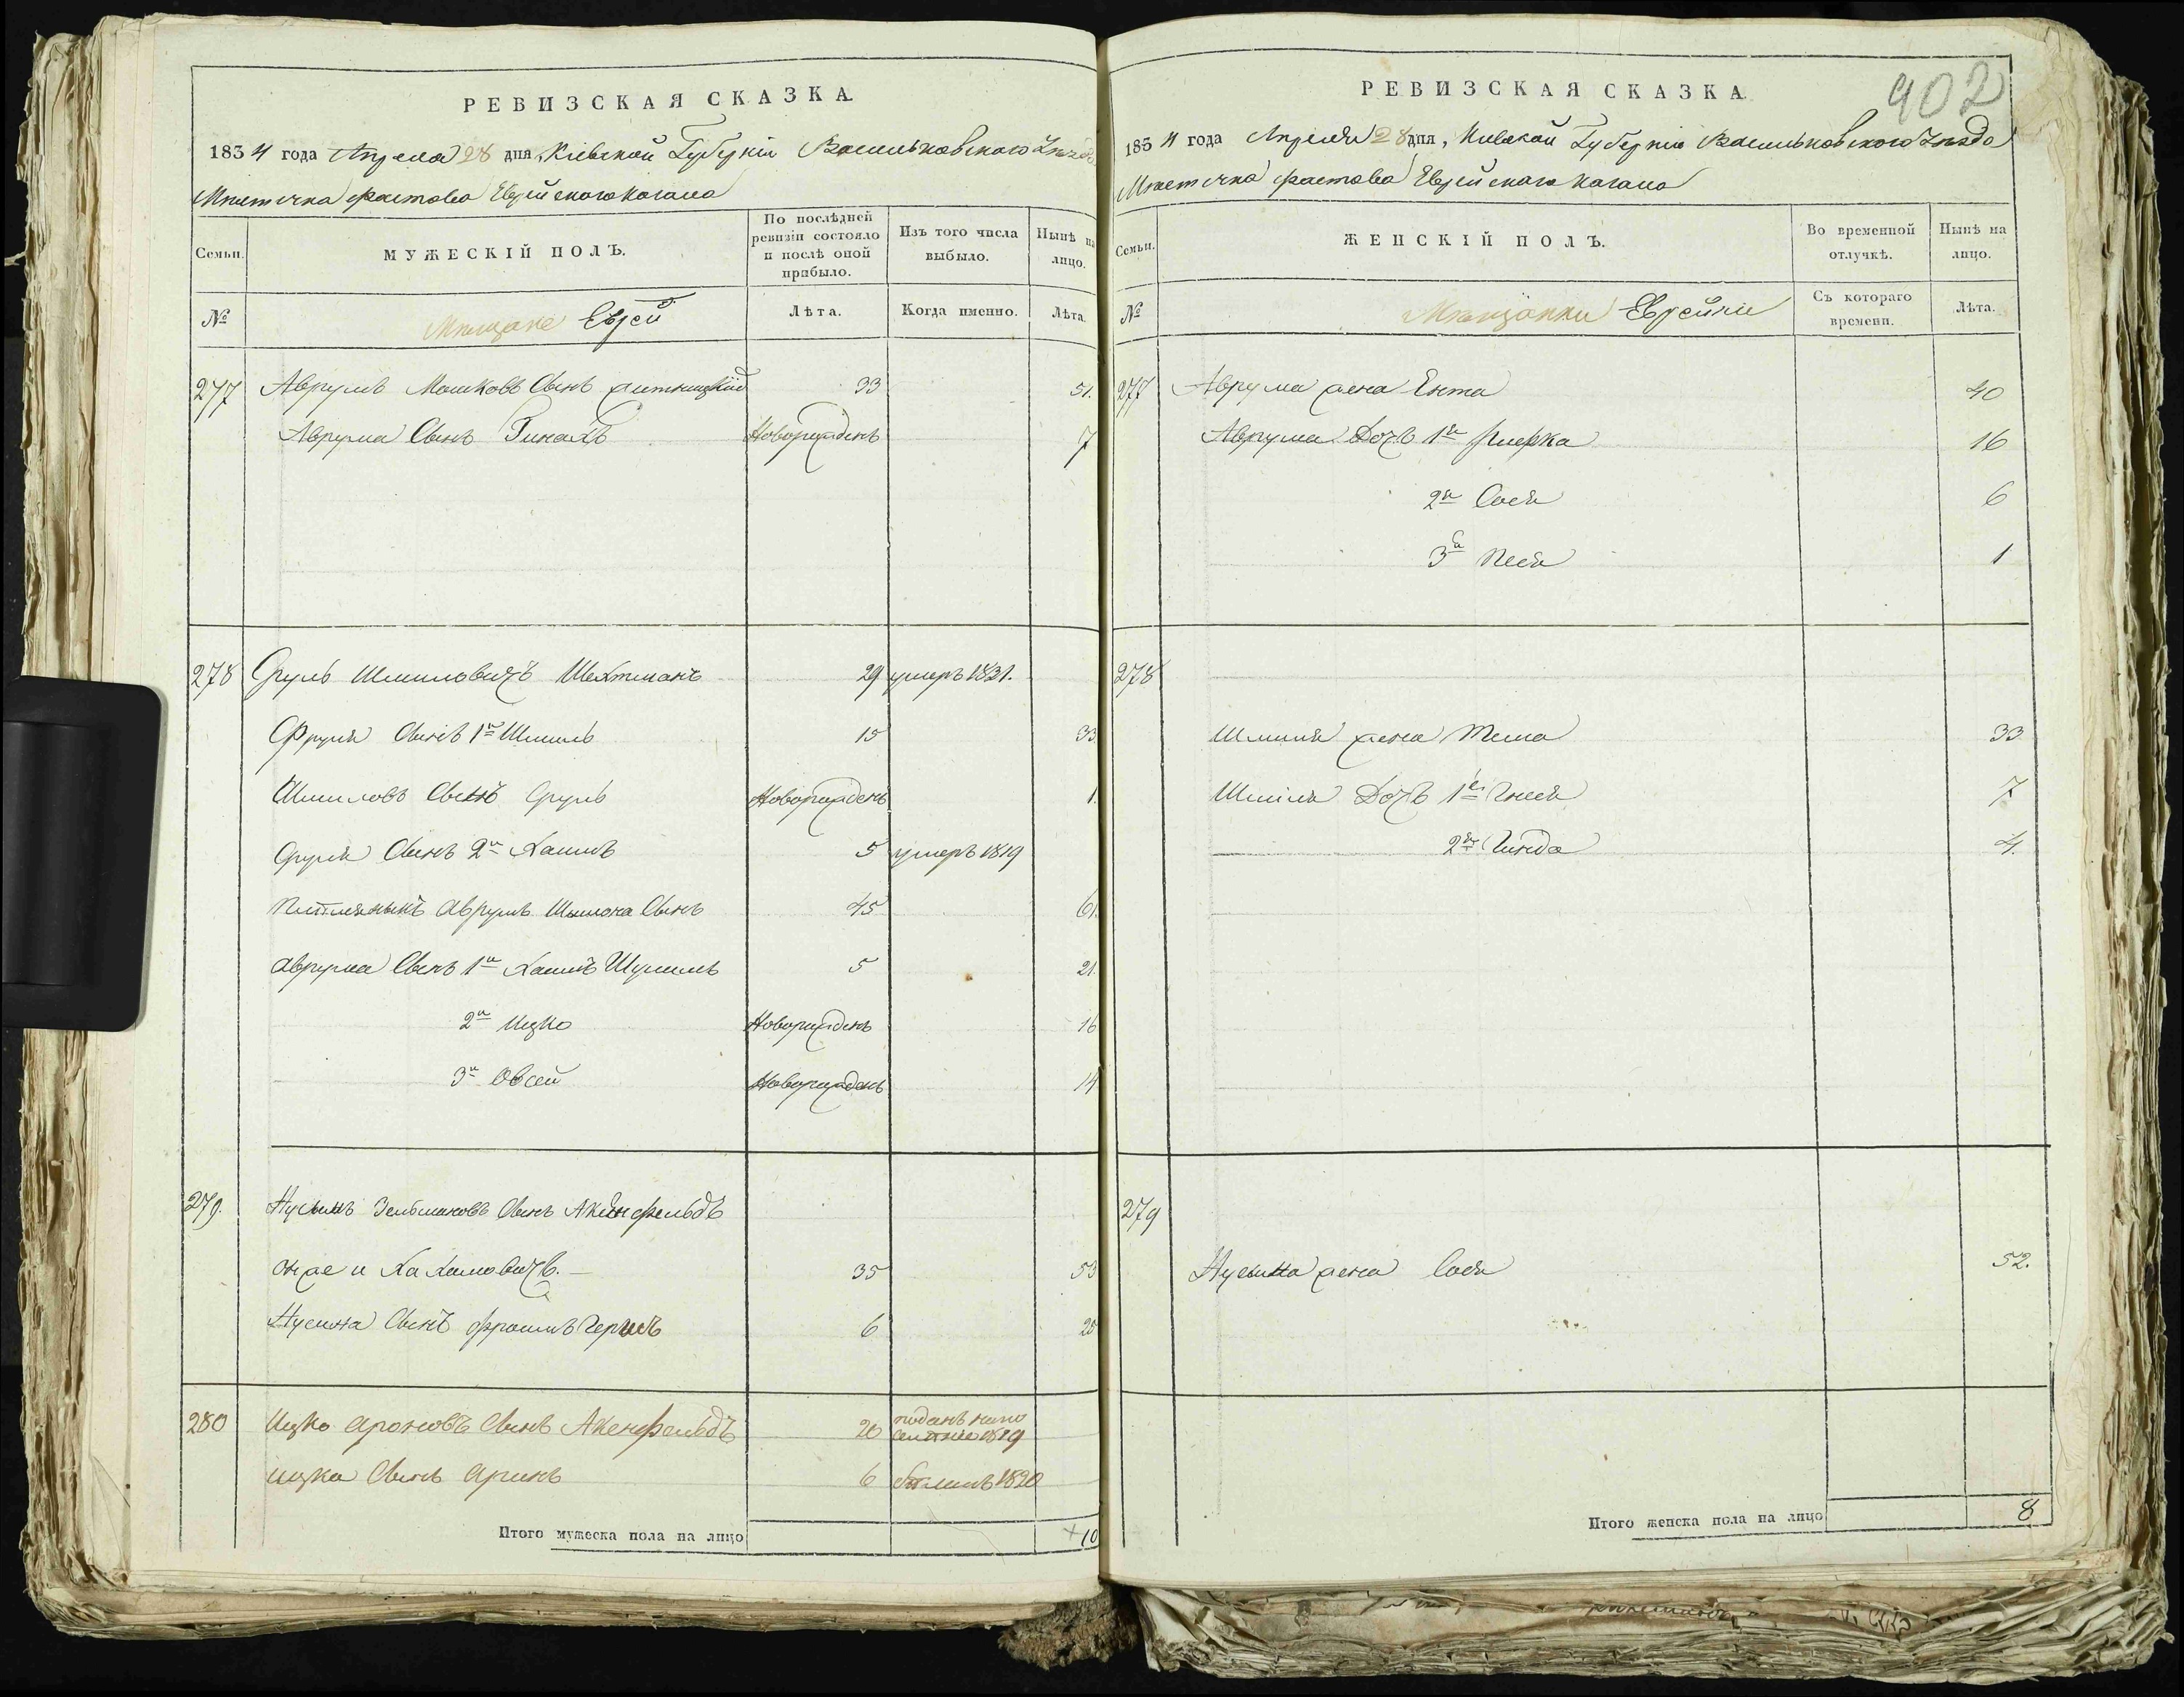 РЕВИЗСКАЯ СКАЗКА
1834 года Апреля 28 дня, Кіевской Губерніи Васильковского Уезда
Мѣстечка Фастова Еврейского Кагала
Семьи.
МУЖЕСКІЙ ПОЛЪ.
По послѣдней ревизіи состояло и послѣ оной прибыло.
Изъ того числа выбыло.
Нынѣ на лицо.
№
Мѣщане Евреи
Лѣта.
Когда именно.
Лѣта.
277 Аврумъ Мошковъ Сынъ 33 51.
Аврума Сынъ Пинахъ Новорожденъ 7
278 Сруль Шмиловичъ Шехтманъ 29 умеръ 1821.
Сруля Сынъ 1й Шмиль 15 33
Шмиловъ Сынъ Сруль Новорожденъ 1.
Сруля Сынъ 2й Хаимъ 5 умеръ 1819
Племянникъ Аврумъ Шмилона Сынъ 45 61.
Аврума Сынъ 1й Хаимъ Шулимъ 5 21.
2й Ицко Новорожденъ 16
3й Овсей Новорожденъ 14
279. Нусынъ Зельмановъ Сынъ Акинфельдъ
онже и Хахамовичъ. 35 53
Нусина Сынъ Фроимъ Гершъ 6
280 Ицко Ароновъ Сынъ Акенфельдъ 20 1819
Ицка Сынъ Аринъ 6 1820
Итого мужеска пола на лицо +10
РЕВИЗСКАЯ СКАЗКА
902
1834 года Апреля 28 дня, Киевской Губерніи Васильковского Уезда
Мѣстечка Фастова Еврейского Кагала
Семьи.
ЖЕНСКІЙ ПОЛЪ.
Во временной отлучкѣ.
Нынѣ на лицо.
№
Мѣщанки Еврейки
Съ котораго времени.
Лѣта.
277 Аврума жена Ента 40
Аврума Дочь 1я Ривка 16
2я Сося 6
3я Песя 1
278
Шмиля жена 33
Шмиля Дочь 1я Гнеся 7
2я Гинда 4.
279
Нусына жена Сося 52.
Итого женска пола на лицо 8